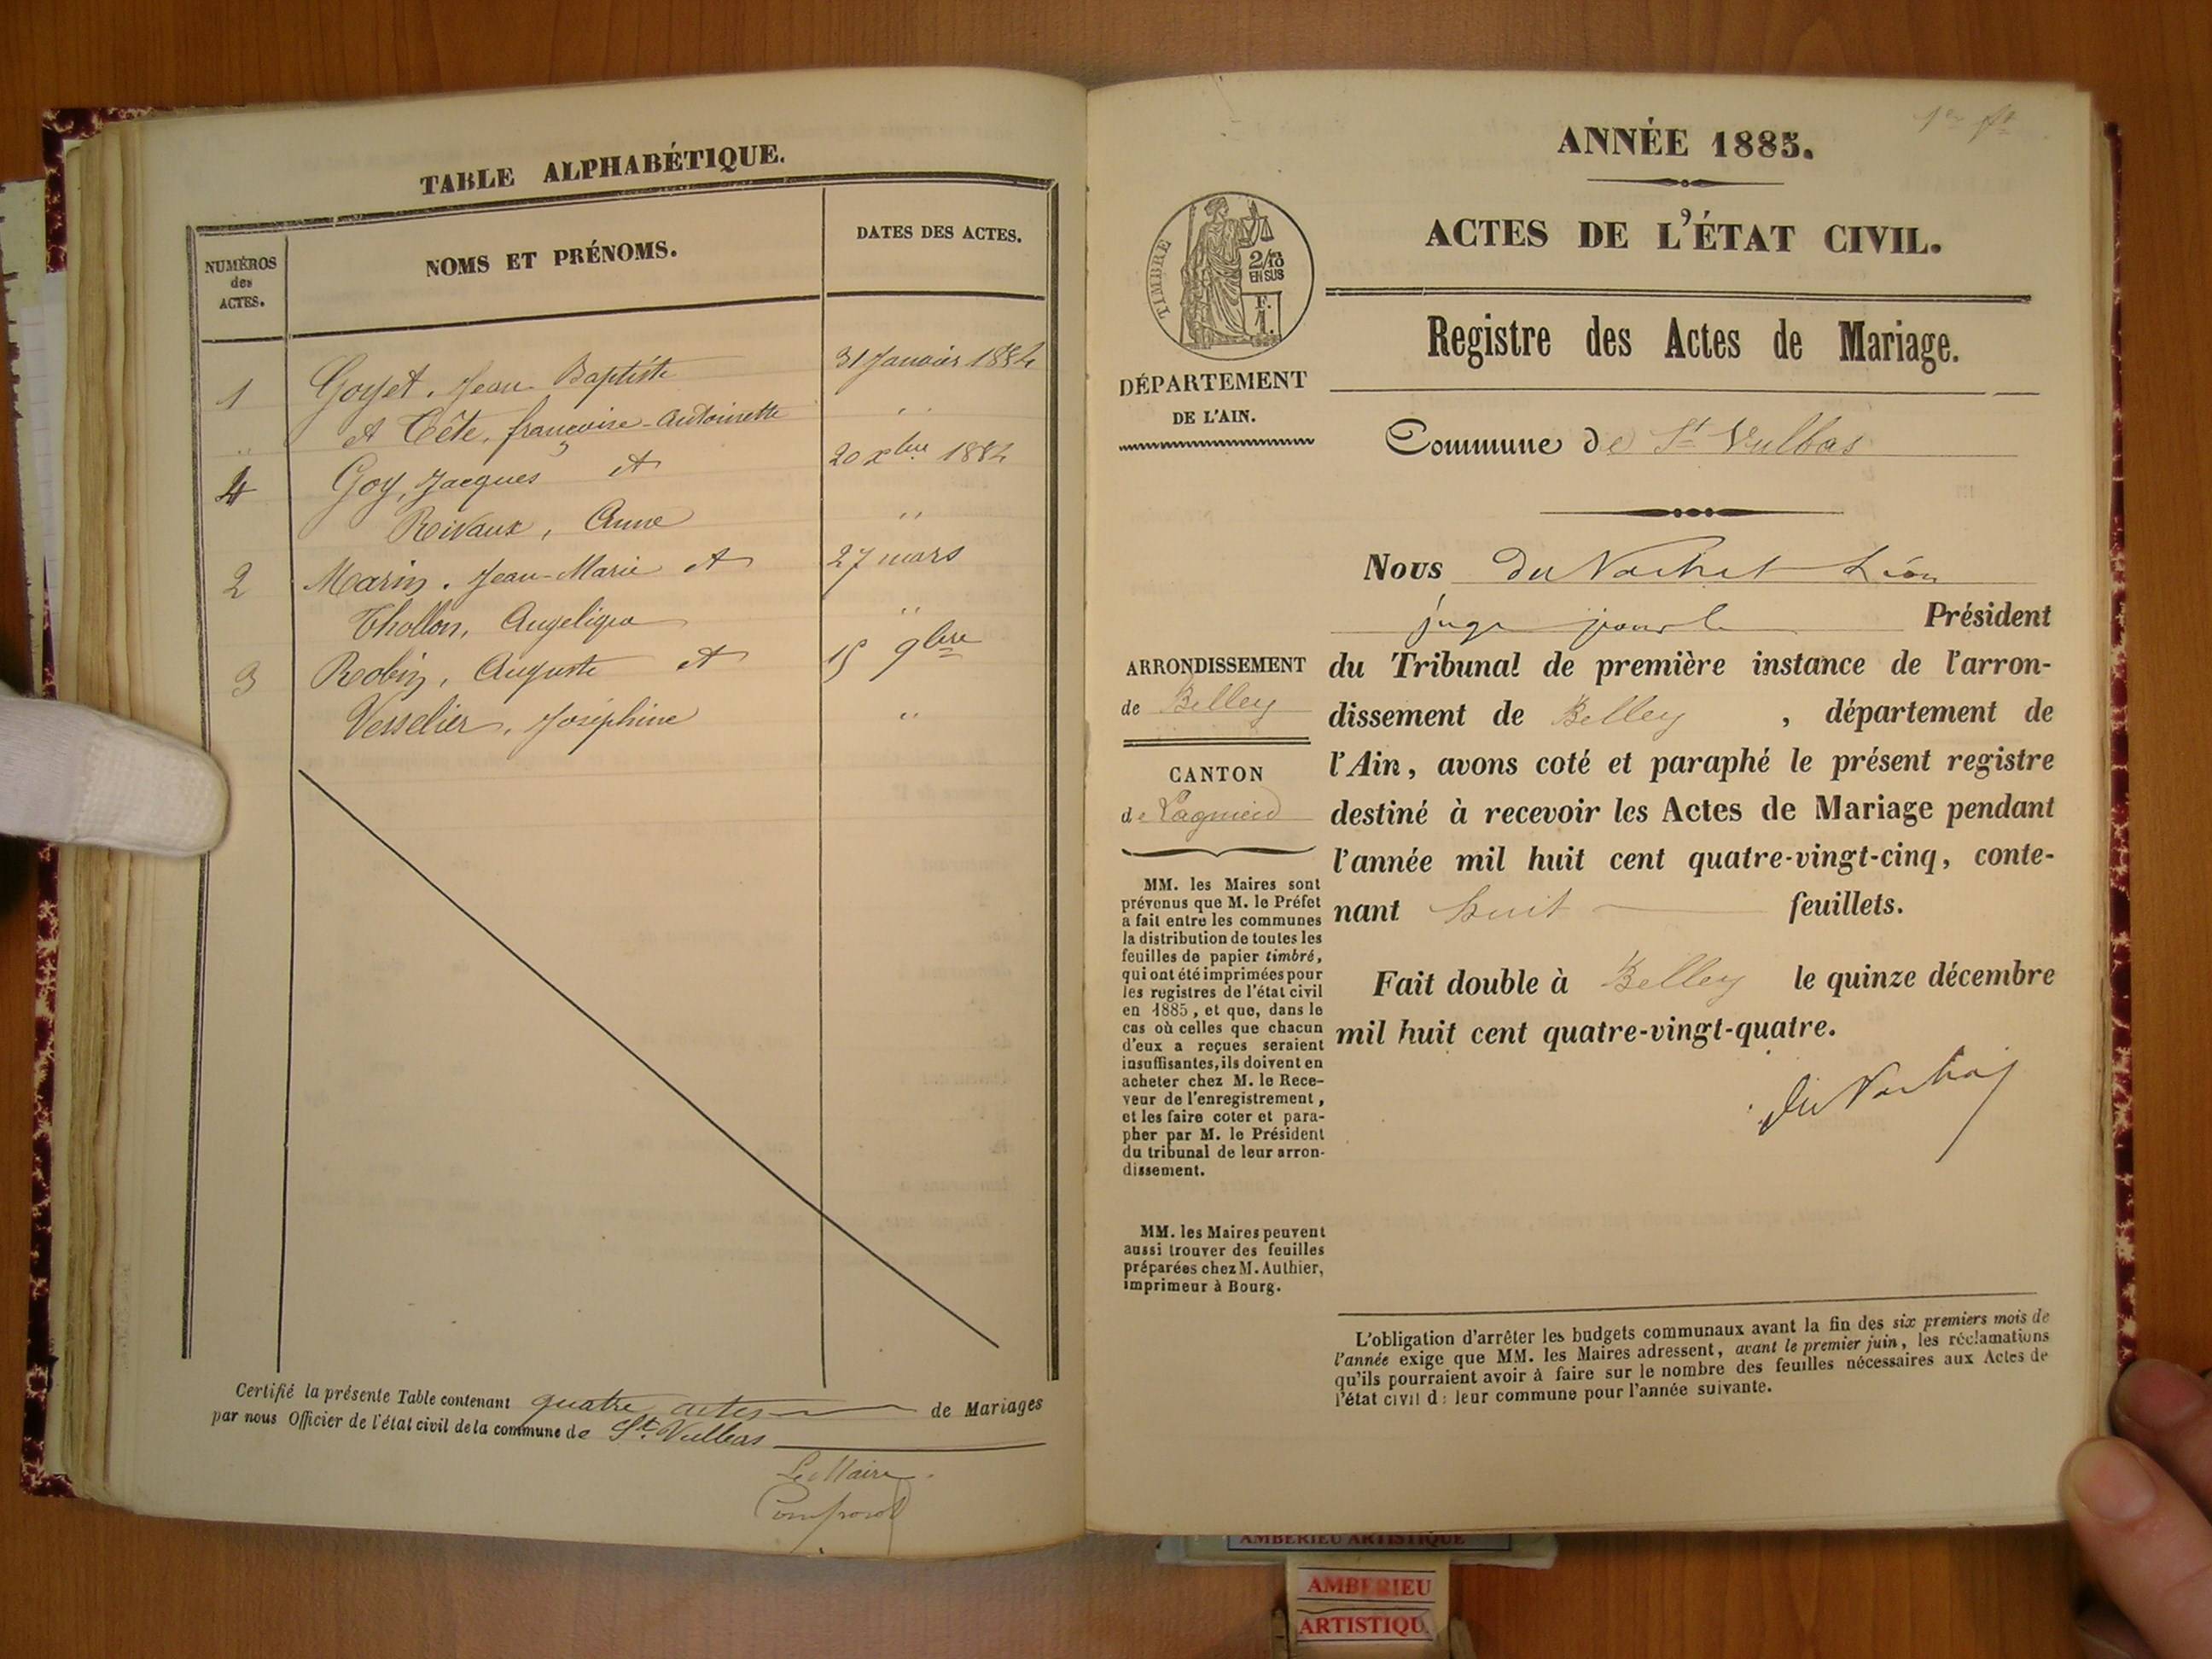 TABLE ALPHABÉTIQUE.
NUMÉROS
des
ACTES.
NOMS ET PRÉNOMS.
DATES DES ACTES.
1 Goyet, Jean Baptiste 31 Janvier 1884
.. et Tête, françoise-Antoinette ..
4 Goy, Jacques et 20 xbre 1884
Rivaux, Anne ..
2 Marin, Jean-Marie et 27 mars
Thollon, Angeliqua ..
3 Robin, Auguste et 15 9bre
Vesselier, Joséphine ..
Certifié la présente Table contenant quatre actes de Mariages
par nous Officier de l'état civil de la commune de St. Vulbas
Le Maire
1er ft
ANNÉE 1885.
ACTES DE L'ÉTAT CIVIL.
TIMBRE
2/10
EN SUS
F.
1.
Registre des Actes de Mariage.
DÉPARTEMENT
DE L'AIN.
Commune de St Vulbas
Nous Du Vachat Léon
juge pour le Président
du Tribunal de première instance de l'arron-
dissement de Belley, département de
l'Ain, avons coté et paraphé le présent registre
destiné à recevoir les Actes de Mariage pendant
l'année mil huit cent quatre-vingt-cinq, conte-
nant huit feuillets.
Fait double à Belley le quinze décembre
mil huit cent quatre-vingt-quatre.
Du Vachat
ARRONDISSEMENT
de Belley
CANTON
de Lagnieu
MM. les Maires sont
prévenus que M. le Préfet
a fait entre les communes
la distribution de toutes les
feuilles de papier timbré,
qui ont été imprimées pour
les registres de l'état civil
en 1885, et que, dans le
cas où celles que chacun
d'eux a reçues seraient
insuffisantes, ils doivent en
acheter chez M. le Rece-
veur de l'enregistrement,
et les faire coter et para-
pher par M. le Président
du tribunal de leur arron-
dissement.
MM. les Maires peuvent
aussi trouver des feuilles
préparées chez M. Authier,
imprimeur à Bourg.
L'obligation d'arrêter les budgets communaux avant la fin des six premiers mois de
l'année exige que MM. les Maires adressent, avant le premier juin, les réclamations
qu'ils pourraient avoir à faire sur le nombre des feuilles nécessaires aux Actes de
l'état civil d: leur commune pour l'année suivante.
AMBERIEU ARTISTIQUE
AMBERIEU
ARTISTIQU